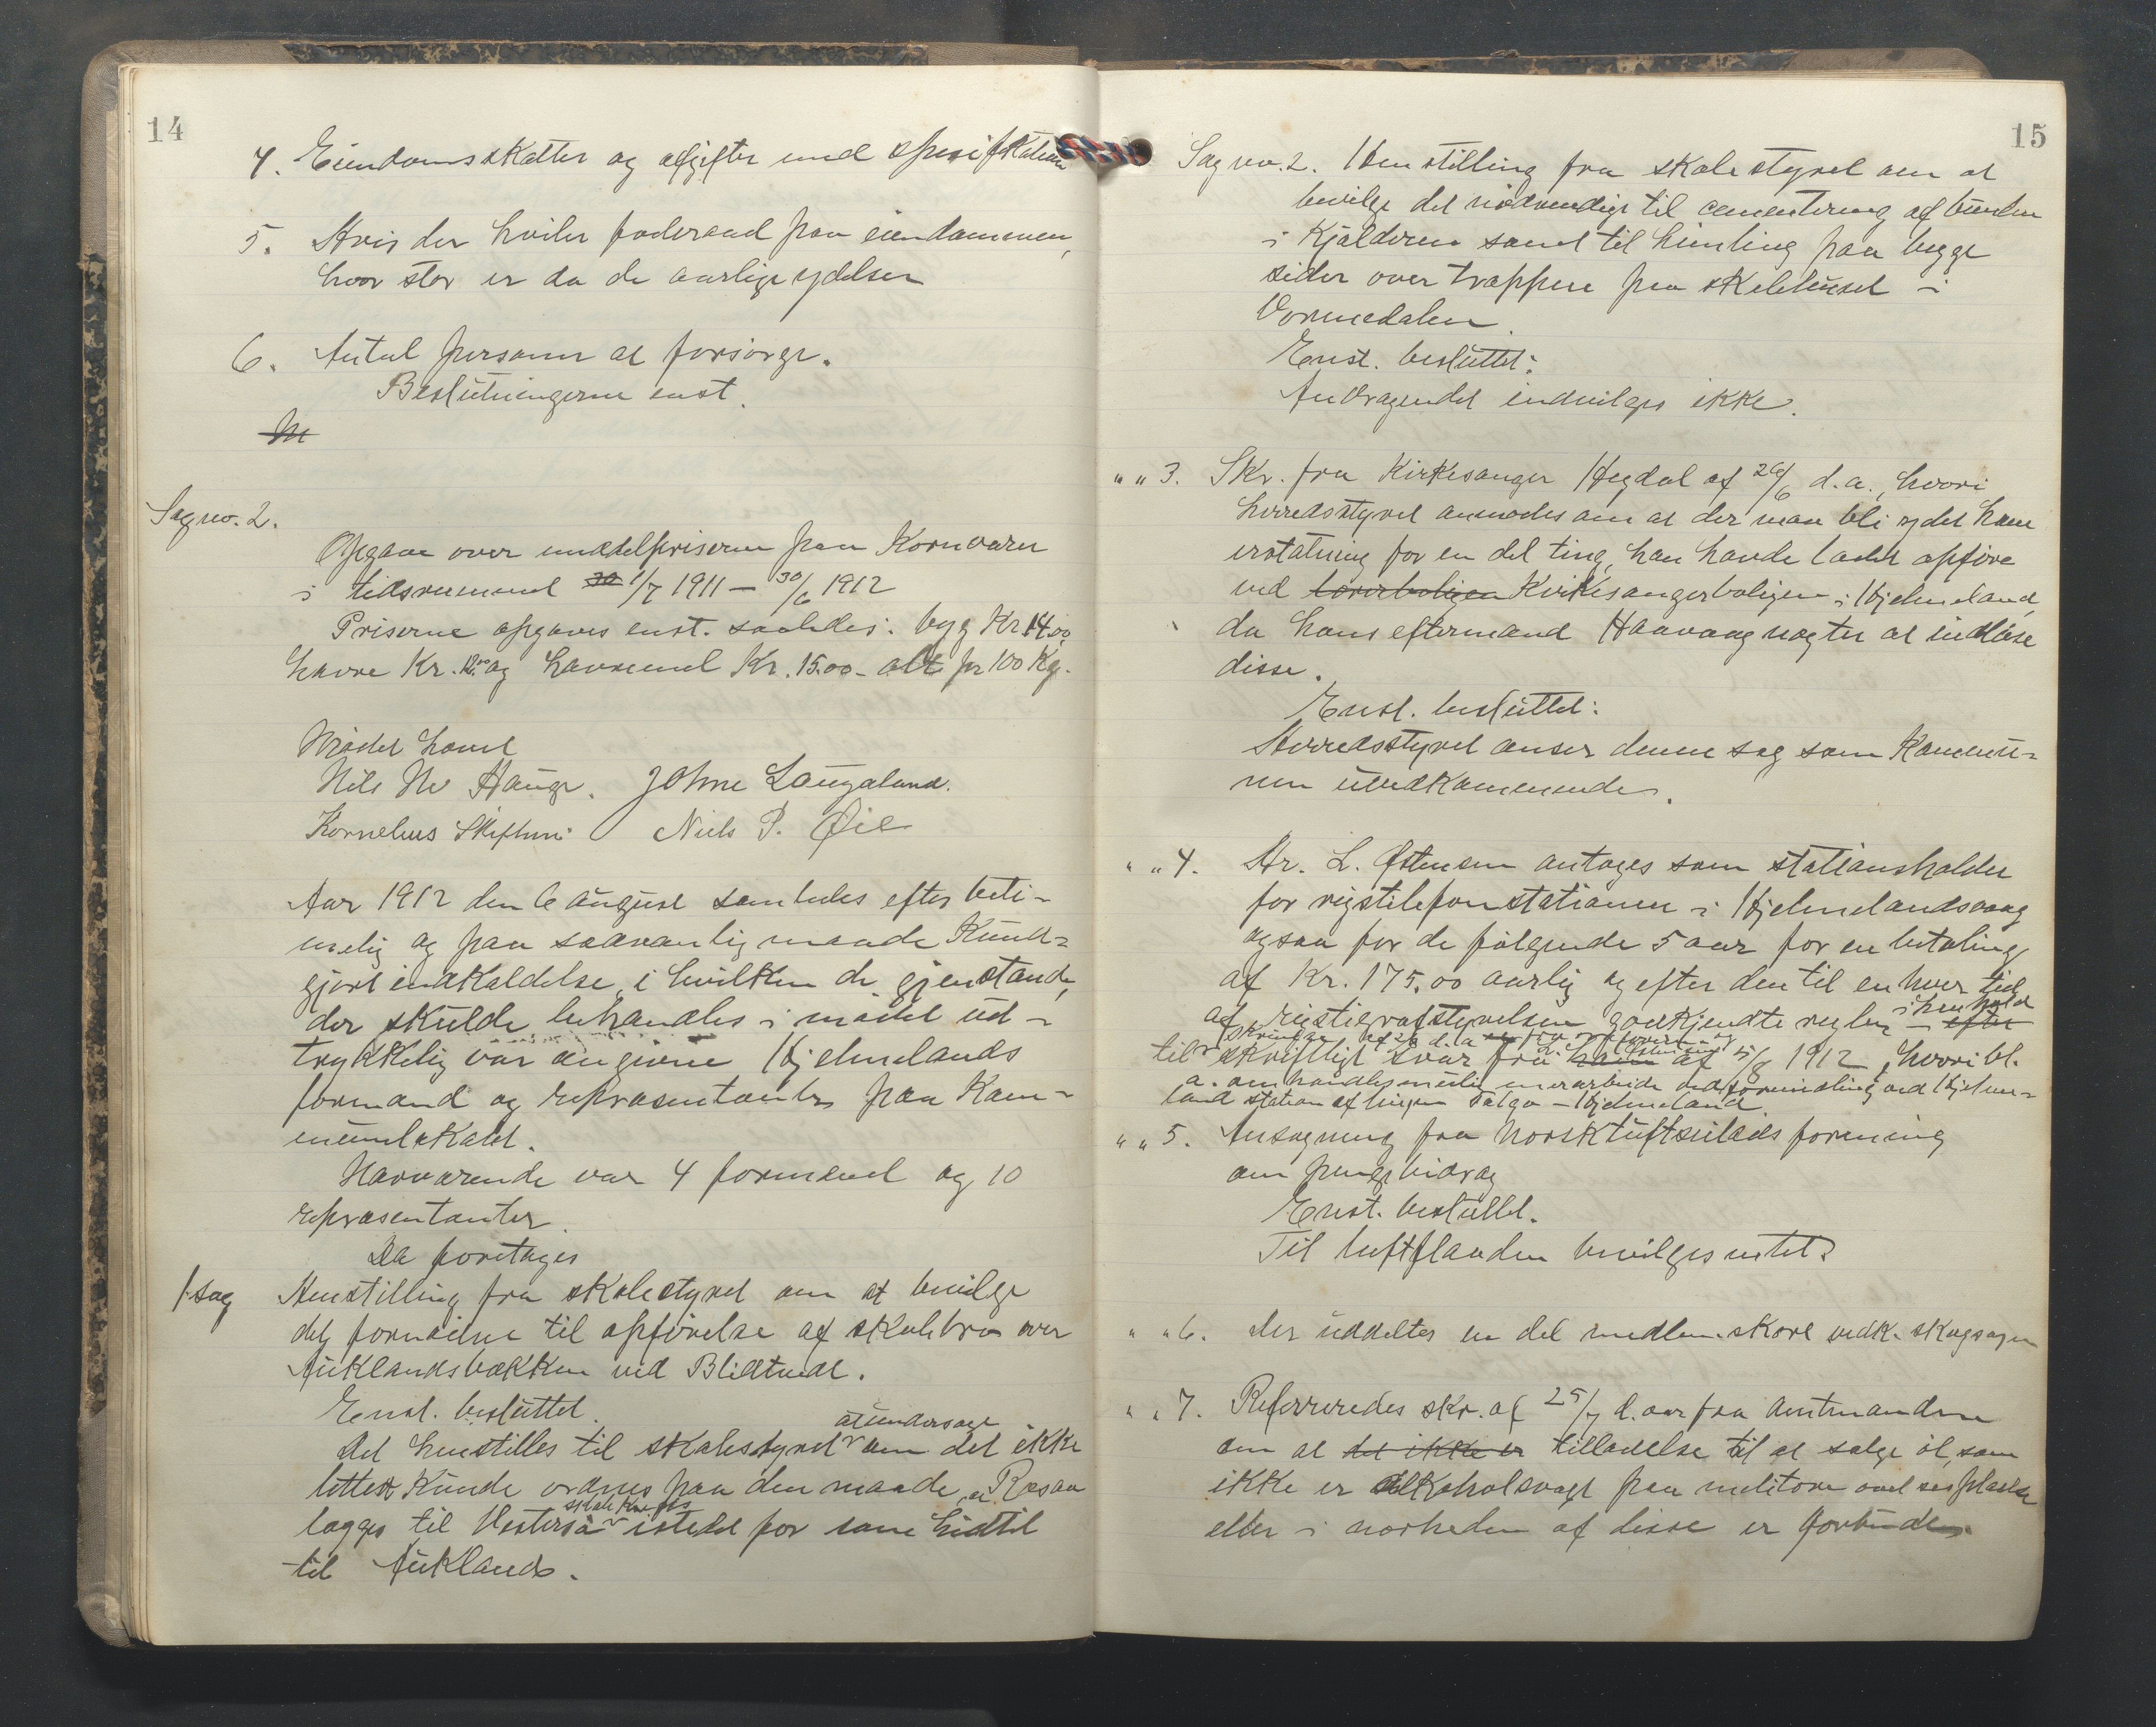 14
4. Eiendomsskatter og afgifter med spesifikation
5. Hvis der hviler foderaad paa eiendommen,
hvor stor er da de aarlige ydelser
6. Antal personer at forsørge.
Beslutningerne enst.
M
Sag no. 2.
Opgave over middelpriserne paa Kornvarer
i tidsrummet 30 1/7 1911 — 30/6 1912
Priserne opgaves enst. saaledes: byg Kr 14.00
havre Kr. 12.00 og havremel Kr. 15.00 - alt pr 100 Kg.
Mødet hævet
Nils M Hauge. Johne Laugaland.
Kornelius Skiftun Niels P. Øie
Aar 1912 den 6 august samledes efter beti-
melig og paa saavanlig maade Kund-
gjort indkaldelse, i hvilken de gjenstande,
der skulde behandles i mødet ud-
trykkelig var angivne Hjelmelands
formænd og repræsentanter paa Kom-
munelokalet.
Nærværende var 4 formænd og 10
repræsentanter.
Da foretages
1. sag Henstilling fra skolestyret om at bevilge
det fornødne til opførelse af skolebro over
Auklandsbækken ved Blidtvedt.
Enst. besluttet.
at undersøge
Det henstilles til skolestyret v om det ikke
lettest Kunde ordnes paa den maade, at Rosaa
skolekreds
lægges til Vesterså v istedet for som hidtil
til Auklands.
15
Sag no. 2. Henstilling fra skolestyret om at
bevilge det nødvendige til cementering af bunden
i Kjælderen samt til himling paa begge
sider over trappene paa skolehuset i
Vormedalen.
Enst. besluttet:
Andragendet indvilges ikke.
" " 3. Skr. fra Kirkesanger Hegdal af 26/6 d.a., hvori
herredsstyret anmodes om at der maa bli ydet ham
erstatning for en del ting, han havde ladet opføre
ved lærerboligen Kirkesangerboligen i Hjelmeland,
da hans eftermand Haavaag nægter at indløse
disse.
Enst. besluttet:
Herredsstyret anser denne sag som Kommu-
nen uvedkommende.
" " 4. Hr. L. Østensen antages som stationsholder
for rigstelefonstationen i Hjelmelandsvaag
ogsaa for de følgende 5 aar for en betaling
af Kr. 175.00 aarlig og efter den til en hver tid
i henhold
af rigstelegrafstyrelsen godkjendte regler — efter
til v skriftligt svar fra ham af 5/8 1912, hvori bl.
a. omhandles mulig merarbeide ved formidling ved Hjelme-
land station af linjen Talgø — Hjelmeland.
" " 5. Ansøgning fra Norsk luftseilads forening
om pengebidrag
Enst. besluttet.
Til luftflaaden bevilges intet.
" " 6. Der uddeltes en del medlemskort vedk. skogsagen
" " 7. Refereredes skr. af 25/7 d. aar fra Amtmanden
om at det ikke er tilladelse til at sælge øl, som
ikke er alkoholsvagt paa militære øvelsespladse
eller i nærheden af disse er forbuden.